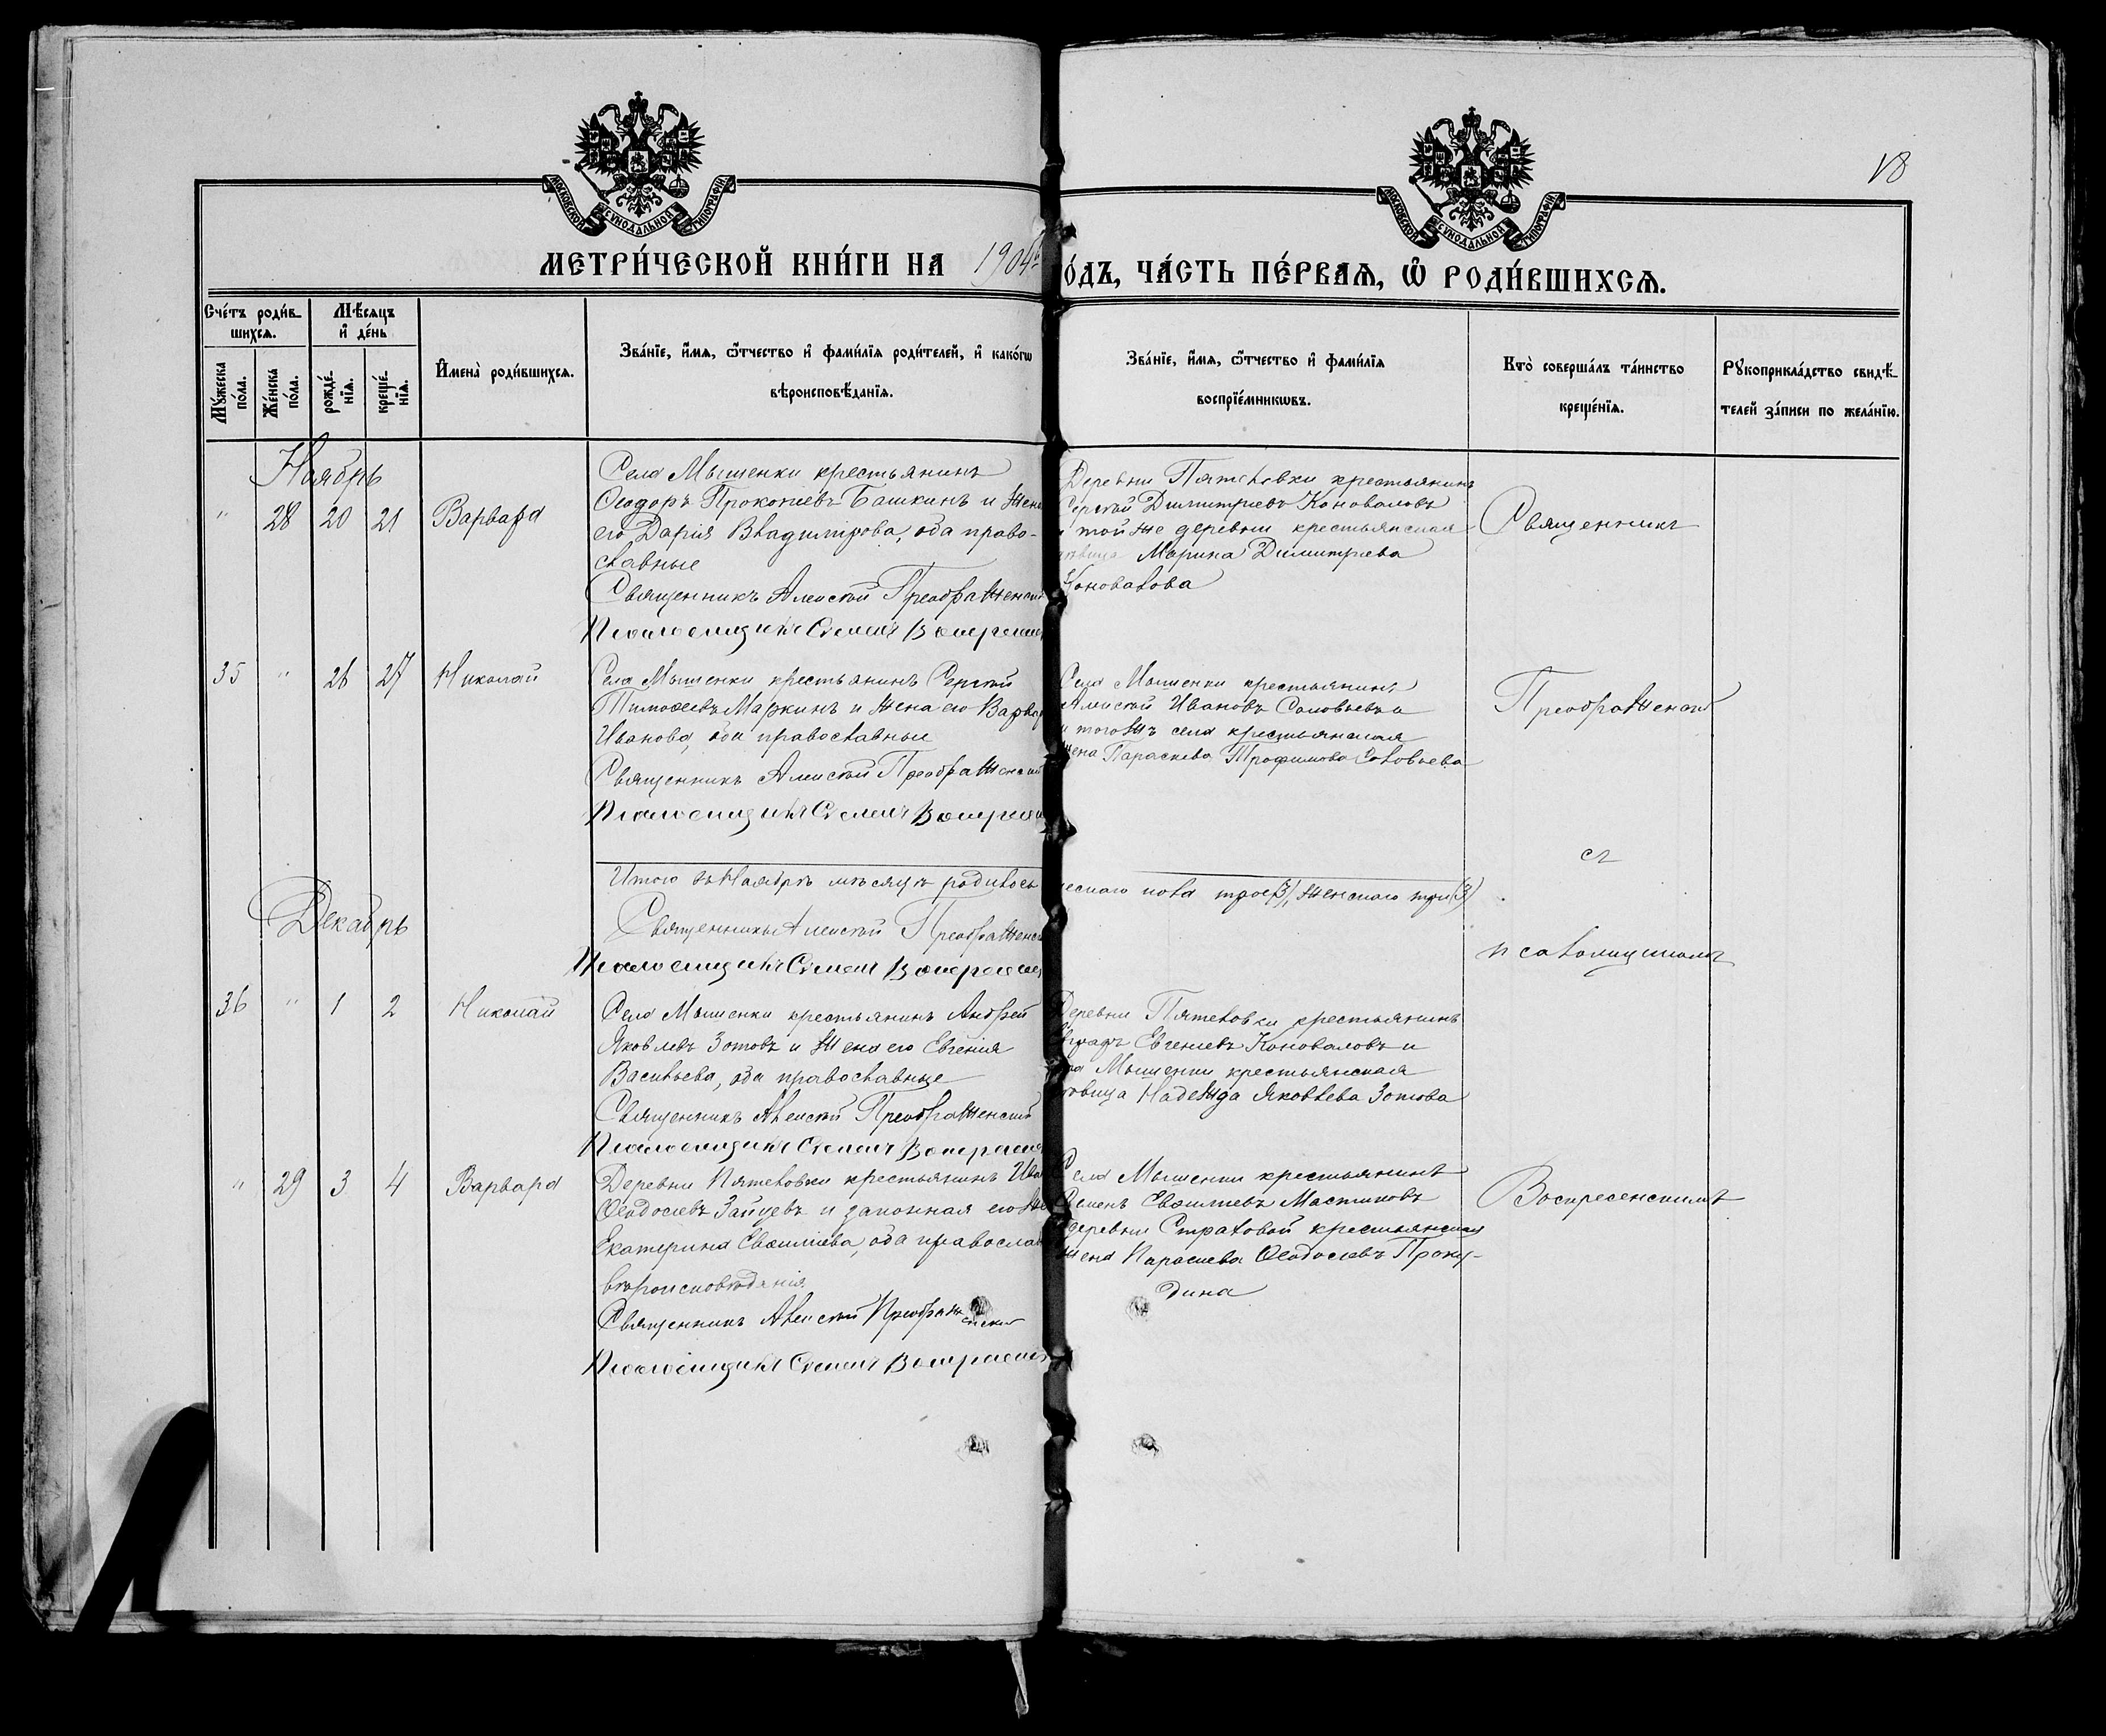 18
МОСКОВСКОЙ СѴНОДАЛЬНОЙ ТИПОГРАФІИ
МОСКОВСКОЙ СѴНОДАЛЬНОЙ ТИПОГРАФІИ
МЕТРИ́ЧЕСКОЙ КНИ́ГИ НА 1904
О́ДЪ, ЧА́СТЬ ПЕ́РВАЯ, Ѡ҆ РОДИ́ВШИХСЯ.
Сче́тъ роди́в-
шихся.
Мѣ́сяцъ
и҆ де́нь
Му́жеска по́ла.
Же́нска по́ла.
рожде́-нїя.
креще́-нїя.
И҆мена̀ роди́вшихся.
Зва́нїе, и҆́мя, ѻ҆́тчество и҆ фами́лїя роди́телей, и҆ како́гѡ
вѣроисповѣ́данїя.
Зва́нїе, и҆́мя, ѻ҆́тчество и҆ фами́лїя
воспрїе́мникѡвъ.
Кто̀ соверша́лъ та́инство
креще́нїя.
Рукоприкла́дство свидѣ́-
телей за́писи по жела́нїю.
Ноябрь
" 28 20 21 Варвара
Села Мышенки крестьянинъ
Ѳеодоръ Прокопіевъ Башкинъ и жена
его Дарія Владимірова, оба право-
славные
Священникъ Алексѣй Преображенскій
Псаломщикъ Воскресенск
Деревни Пятеловки крестьянинъ
Сергѣй Димитріевъ Коноваловъ
и той же деревни крестьянская
Марина Димитріева
Коновалова
Священникъ
35 " 26 27 Николай
Села Мышенки крестьянинъ Сергѣй
Тимоѳеевъ Маркинъ и жена его Варвар
Иванова, оба православные
Священникъ Алексѣй Преображенскій
Псаломщикъ Воскресенск
Села Мышенки крестьянинъ
Алексѣй Ивановъ Соловьевъ
и тогожъ села крестьянская
жена Параскева Трофимова Соловьева
Преображенскій
Итого въ Ноябрѣ мѣсяцѣ родилось
ескаго пола трое (3), женскаго три (3)
съ
Священникъ Алексѣй Преображенск
Псаломщикъ Воскресенск
псаломщикомъ
Декабрь
36 " 1 2 Николай
Села Мышенки крестьянинъ Андрей
Яковлевъ Зотовъ и жена его Евгенія
Васильева, оба православные
Священникъ Алексѣй Преображенскій
Псаломщикъ Воскресенск
Деревни Пятеловки крестьянинъ
Евгеніевъ Коноваловъ и
Мышенки крестьянская
Надежда Яковлева Зотова
" 29 3 4 Варвара
Деревни Пятеловки крестьянинъ Ива
Ѳеодосіевъ Зайцевъ и законная его же
Екатерина, оба православ
вѣроисповѣданія
Священникъ Алексѣй Преображенскій
Псаломщикъ Воскресенск
Села Мышенки крестьянинъ
деревни Страховой крестьянская
жена Параскева Ѳеодосіевъ Проку-
дина
Воскресенскимъ